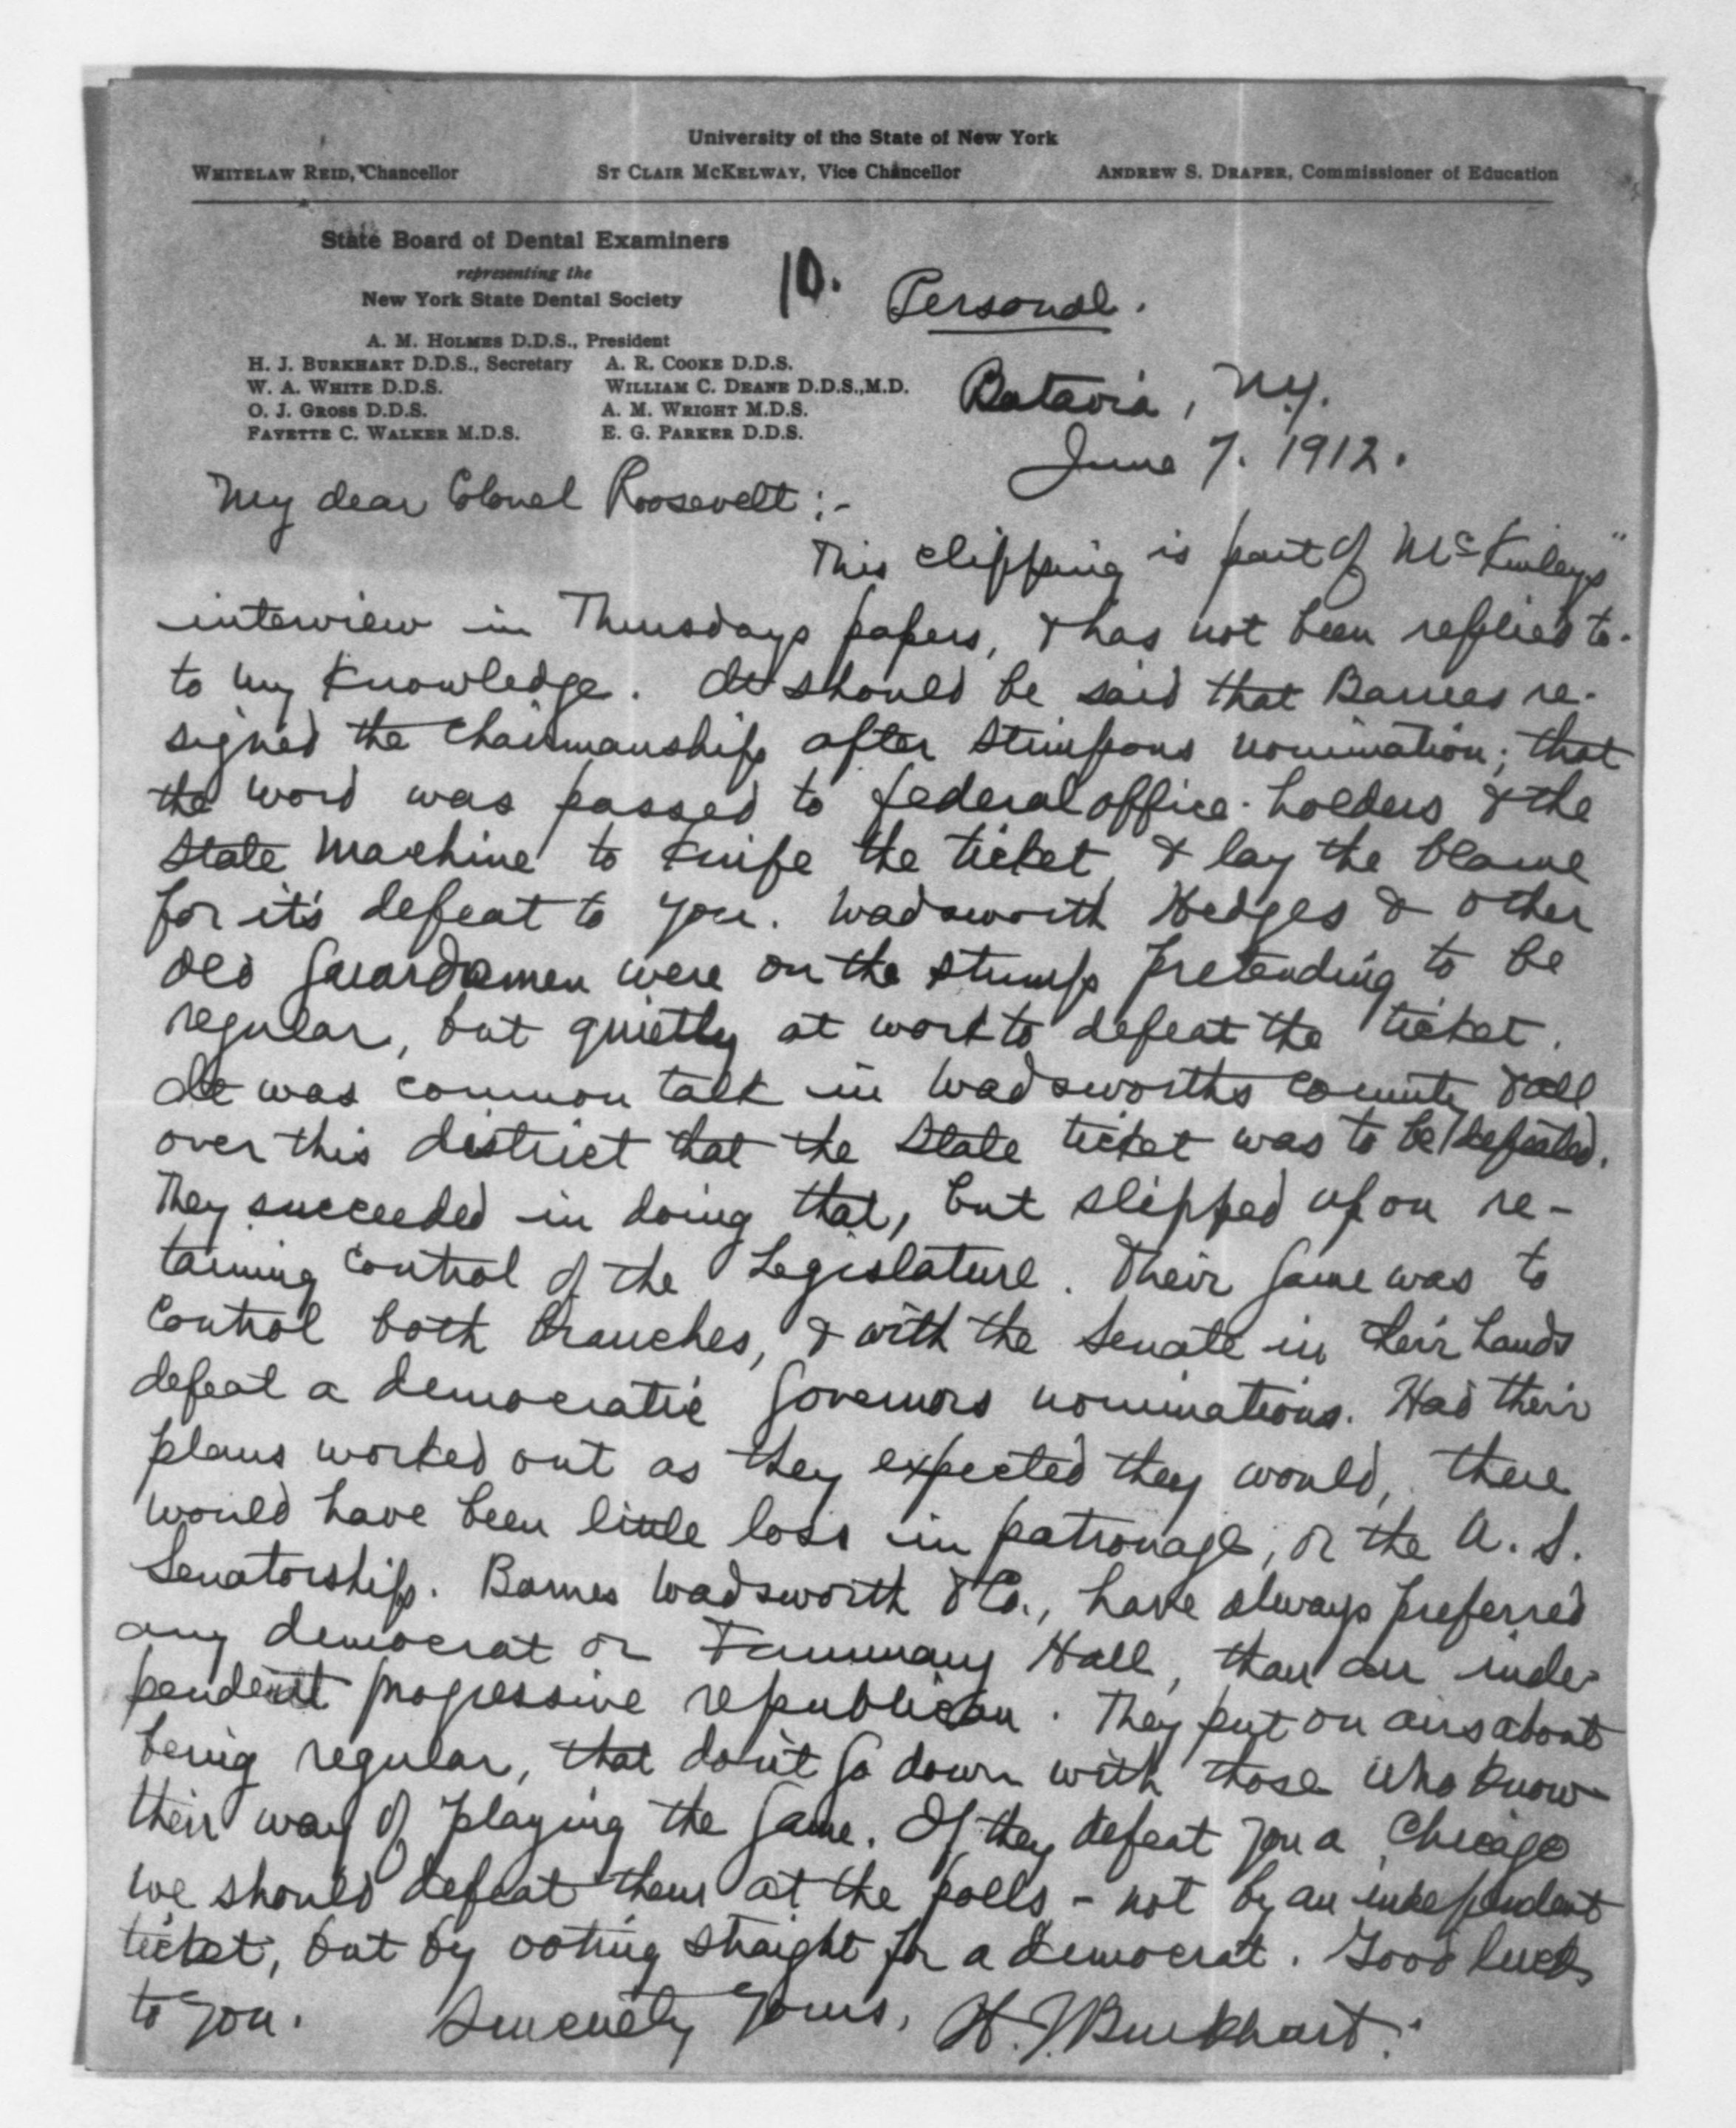 University of the State of New York
WHITELAW REID, Chancellor ST CLAIR MCKELWAY, Vice Chancellor ANDREW S. DRAPER, Commissioner of Education
State Board of Dental Examiners
representing the
New York State Dental Society
A. M. HOLMES D.D.S., President
H. J. BURKHART D.D.S., Secretary A. R. COOKE D.D.S.
W. A. WHITE D.D.S. WILLIAM C. DEANE D.D.S., M.D.
O. J. GROSS D.D.S. A. M. WRIGHT M.D.S.
FAYETTE C. WALKER M.D.S. E. G. PARKER D.D.S.
10. Personal.
Batavia, N.Y.
June 7. 1912.
My dear Colonel Roosevelt:-
This clipping is part of McKinleys"
interview in Thursdays papers, & has not been replied to-
to my knowledge. It should be said that Barnes re-
signed the chairmanship after Stimpsons nomination; that
the word was passed to federal office-holders & the
State Machine to knife the ticket & lay the blame
for it's defeat to you. Wadsworth Hedges & other
old Guardsmen were on the stump pretending to be
regular, but quietly at work to defeat the ticket.
It was common talk in Wadsworths county & all
over this district that the State ticket was to be defeated.
They succeeded in doing that, but slipped up on re-
taining control of the Legislature. Their game was to
control both branches, & with the Senate in their hands
defeat a democratic Governors nominations. Had their
plans worked out as they expected they would, there
would have been little loss in patronage, or the U. S.
Senatorship. Barnes Wadsworth & Co., have always preferred
any democrat or Tammany Hall, than an inde-
pendent progressive republican. They put on airs about
being regular, that don't go down with those who know
their way of playing the game. If they defeat you a Chicago
we should defeat them at the polls - not by an independent
ticket, but by voting straight for a democrat. Good luck
to you. Sincerely yours, H. J. Burkhart.